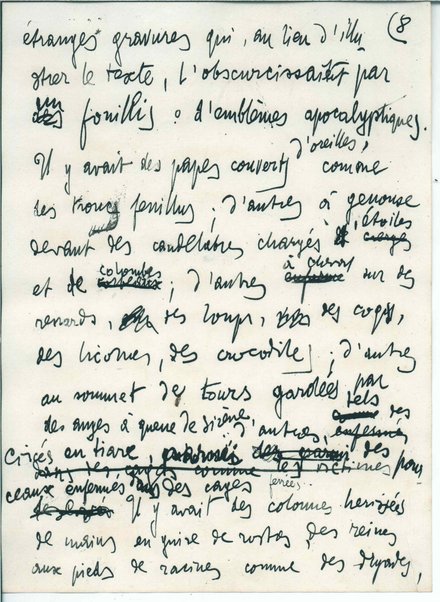 (8
étranges gravures qui, au lieu d'illu
strer le texte, l'obscurcissaient par
un fouillis d'emblèmes apocalyptiques.
Il y avait des papes couverts d'oreilles, comme
des troncs feuillus ; d'autres à genoux
devant des candélabres chargés d'étoiles
et de colombes ; d'autres à cheval sur des
renards, des loups, des coqs,
des licornes, des crocodiles ; d'autres
au sommet de tours gardées par
des anges à queue de sirène ; d'autres, tels des
cirés en tiare, des
pour
ceaux enfermés dans des cages ferrées.
Il y avait des colonnes herissées
de mains en guise de rostres, des reines
aux pieds de racines comme des dryades,